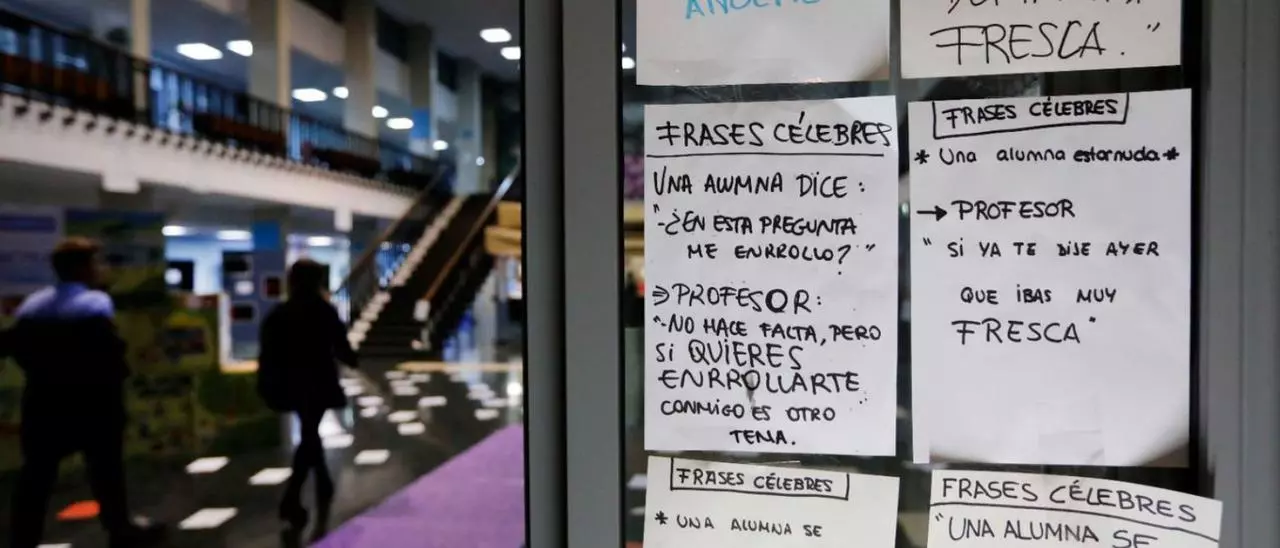 FRESCA."
FRASES CÉLEBRES
UNA ALUMNA DICE:
"-¿EN ESTA PREGUNTA
ME ENRROLLO?"
⇒ PROFESOR:
"-NO HACE FALTA, PERO
SI QUIERES
ENRROLLARTE
CONMIGO ES OTRO
TEMA.
FRASES CÉLEBRES
* Una alumna estornuda *
→ PROFESOR
" SI YA TE DIJE AYER
QUE IBAS MUY
FRESCA"
FRASES CÉLEBRES
* UNA ALUMNA SE
FRASES CÉLEBRES
"UNA ALUMNA SE